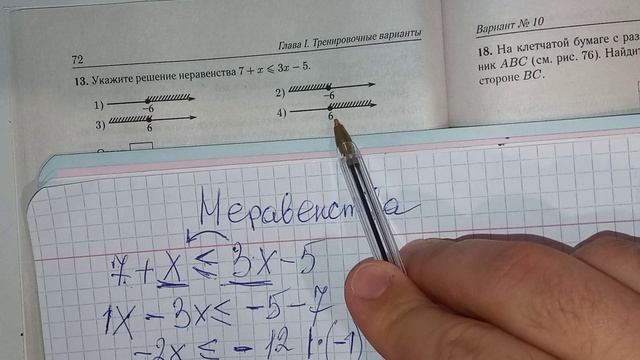 72
Глава I. Тренировочные варианты
13. Укажите решение неравенства 7 + x ⩽ 3x − 5.
1) −6
2) −6
3) 6
4) 6
Вариант № 10
18. На клетчатой бумаге с раз
ник ABC (см. рис. 76). Найди
стороне BC.
Неравенства
7 + x ≤ 3x − 5
1x − 3x ≤ −5 − 7
−2x ≤ −12 | · (−1)